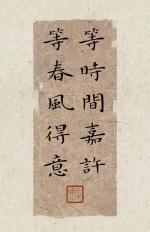 等時間嘉許
等春風得意